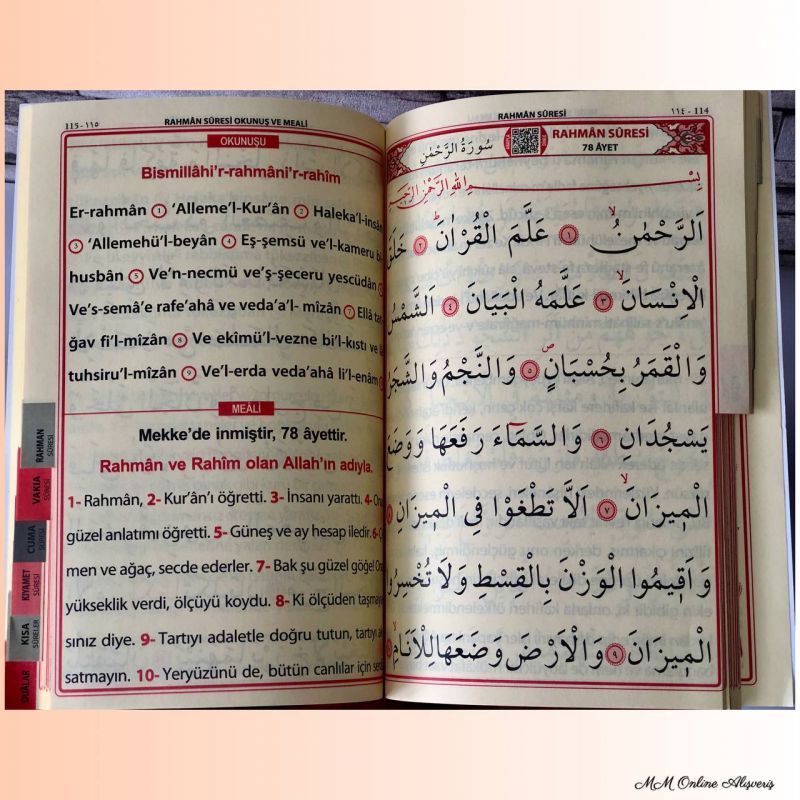 115-١١٥ RAHMÂN SÛRESİ OKUNUŞ VE MEALİ
OKUNUŞU
Bismillâhi'r-rahmâni'r-rahîm
Er-rahmân 1 'Alleme'l-Kur'ân 2 Haleka'l-insân
3 'Allemehü'l-beyân 4 Eş-şemsü ve'l-kameru bi
husbân 5 Ve'n-necmü ve'ş-şeceru yescüdân
Ve's-semâ'e rafe'ahâ ve veda'a'l- mîzân 7 Ellâ tat
ğav fi'l-mîzân 8 Ve ekîmü'l-vezne bi'l-kıstı ve
tuhsiru'l-mîzân 9 Ve'l-erda veda'ahâ li'l-enâm
MEÂLİ
Mekke'de inmiştir, 78 âyettir.
Rahmân ve Rahîm olan Allah'ın adıyla.
1- Rahmân, 2- Kur'ân'ı öğretti. 3- İnsanı yarattı. 4-
güzel anlatımı öğretti. 5- Güneş ve ay hesap iledir. 6-
men ve ağaç, secde ederler. 7- Bak şu güzel göğe!
yükseklik verdi, ölçüyü koydu. 8- Ki ölçüden taşmaya
sınız diye. 9- Tartıyı adaletle doğru tutun, tartıyı
satmayın. 10- Yeryüzünü de, bütün canlılar için
RAHMAN SÛRESİ
VAKIA SÛRESİ
CUMA SÛRESİ
KIYAMET SÛRESİ
KISA SÛRELER
DUALAR
RAHMÂN SÛRESİ ١١٤-114
سُورَةُ الرَّحْمٰنِ
RAHMÂN SÛRESİ
78 ÂYET
بِسْمِ اللّٰهِ الرَّحْمٰنِ الرَّحِيمِ
اَلرَّحْمٰنُۙ ١ عَلَّمَ الْقُرْاٰنَۜ ٢ خَلَقَ
الْاِنْسَانَۙ ٣ عَلَّمَهُ الْبَيَانَ ٤ اَلشَّمْسُ
وَالْقَمَرُ بِحُسْبَانٍۖ ٥ وَالنَّجْمُ وَالشَّجَرُ
يَسْجُدَانِ ٦ وَالسَّمَٓاءَ رَفَعَهَا وَوَضَعَ
الْم۪يزَانَۙ ٧ اَلَّا تَطْغَوْا فِي الْم۪يزَانِ ٨
وَاَق۪يمُوا الْوَزْنَ بِالْقِسْطِ وَلَا تُخْسِرُوا
الْم۪يزَانَ ٩ وَالْاَرْضَ وَضَعَهَا لِلْاَنَامِۙ
MM Online Alışveriş